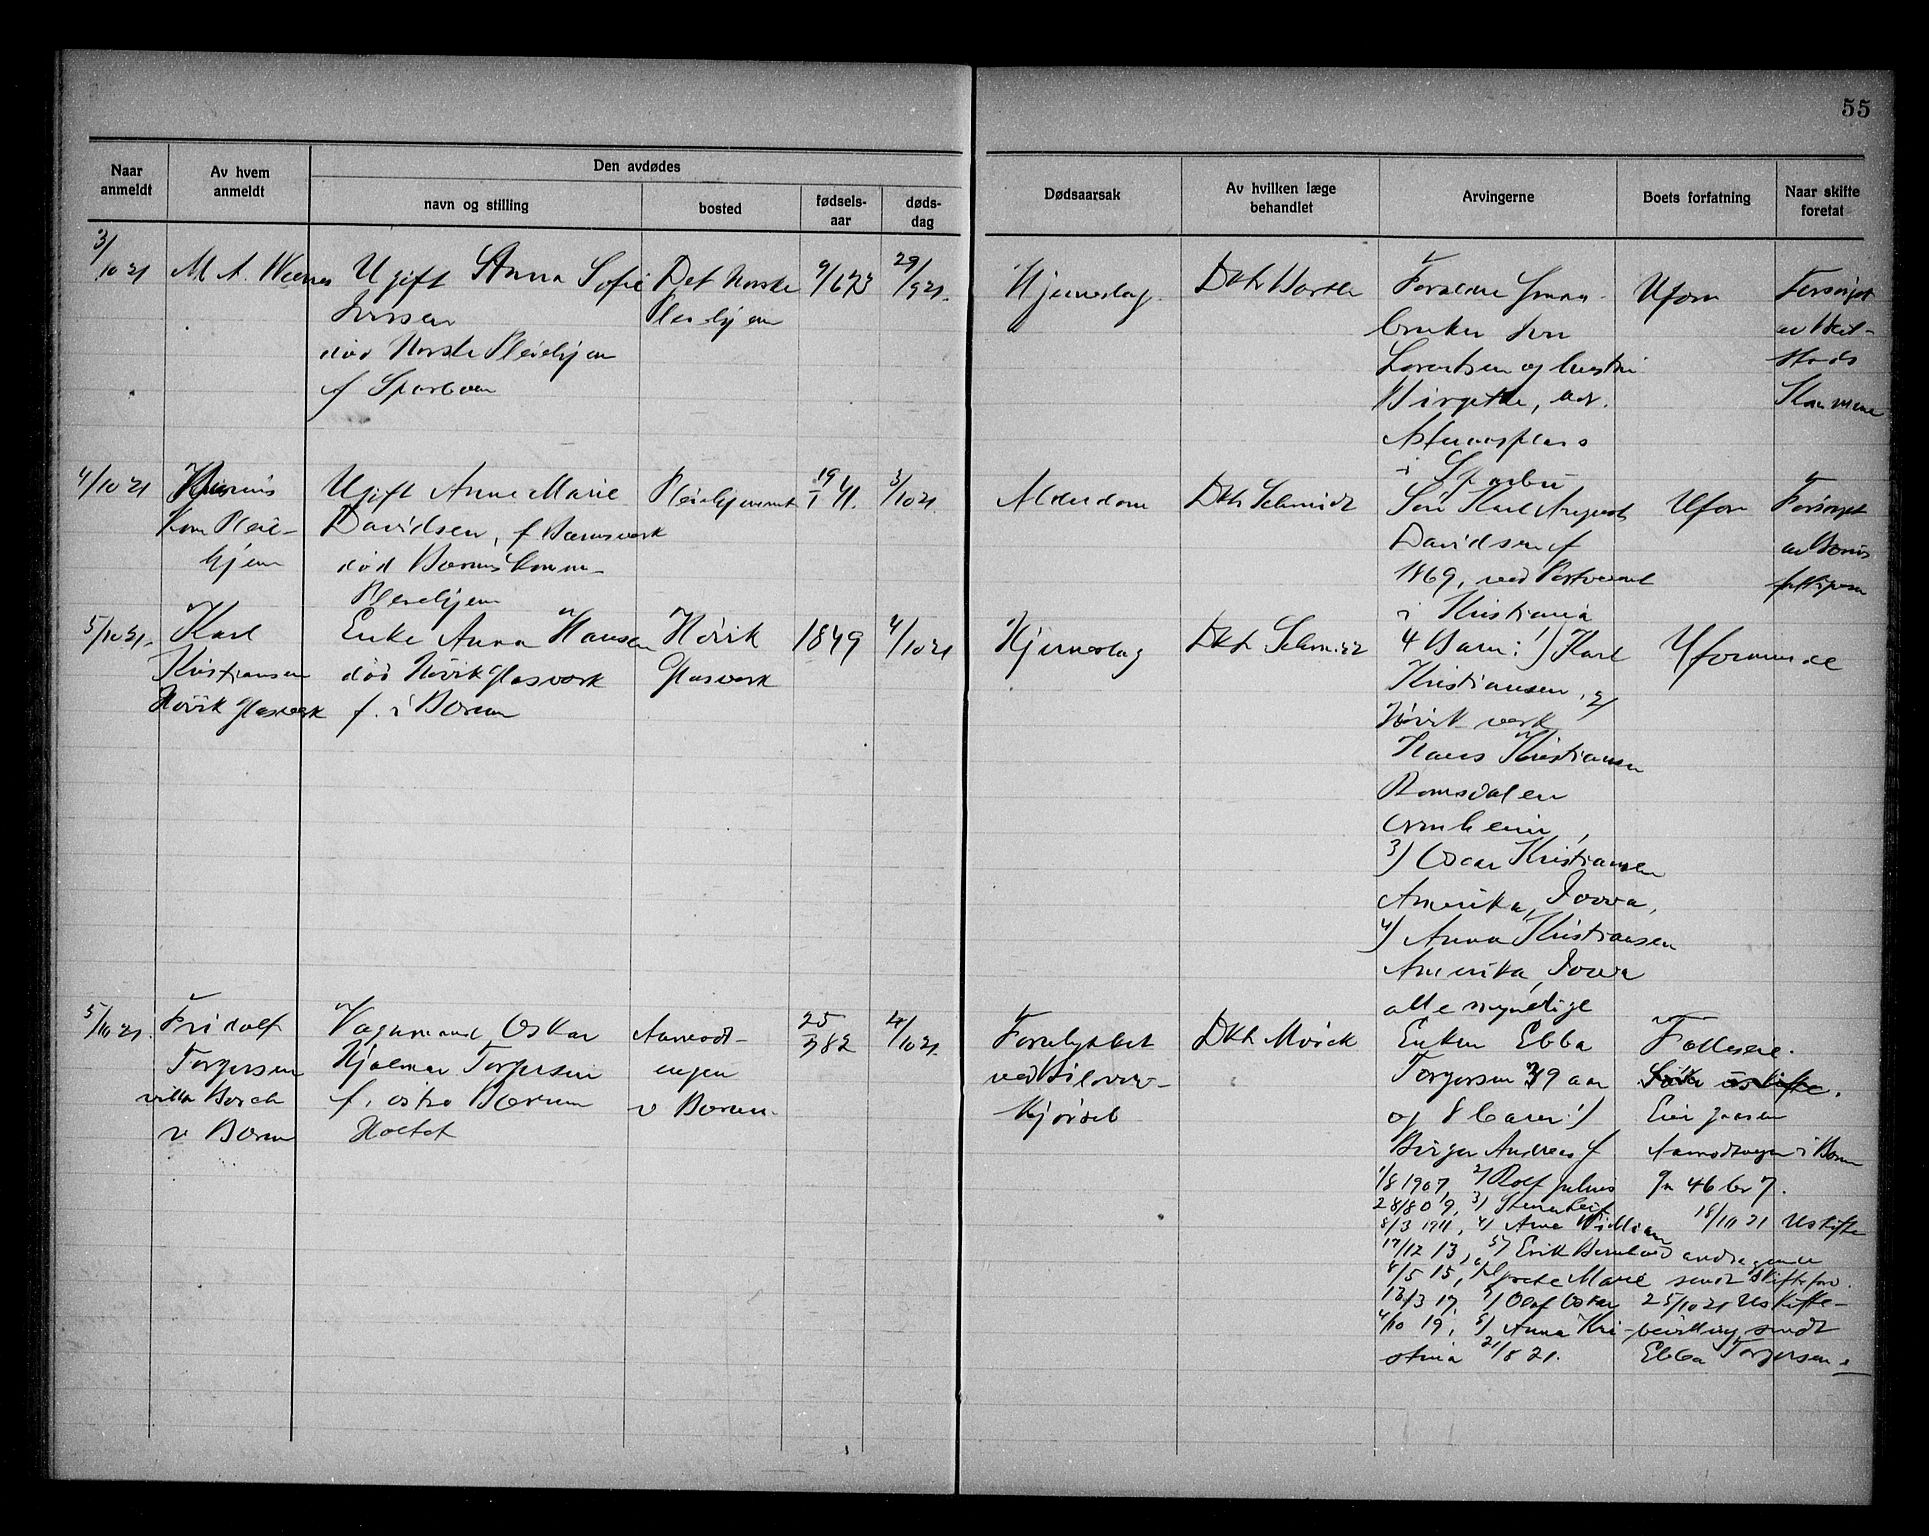 55
Naar anmeldt
Av hvem anmeldt
Den avdødes
navn og stilling
bosted
fødselsaar
dødsdag
Dødsaarsak
Av hvilken læge behandlet
Arvingerne
Boets forfatning
Naar skifte foretat
3/10 21
M A.
Ugift Anna Sofie
død Norske Pleiehjem
f Sparboen
Det Norske
Pleiehjem
9/6 73
29/9 21.
Hjerneslag.
Dktr
Forældre
bruker
Lorentsen og hustru
Birgitte, adr.
i Sparbu
Uform
Forsørget
av
stads
Kommune
4/10 21
Bærums
Kom Pleie-
hjem
Ugift Anne Marie
Davidsen, f Bærumsverk
død Bærums komm-
Pleiehjem
Pleiehjemmet
19/1 41.
3/10 21
Alderdom
Dktr Schmidt
Søn Karl August
Davidsen f
1869, ved
i Kristiania
Uform
Forsørget
av Bærums
5/10 21.
Karl
Kristiansen
Høvik Glasverk
Enke Anna Hansen
død Høvik Glasverk
f. i Bærum
Høvik
Glasverk
1849
4/10 21
Hjerneslag
Dktr
4 Barn: 1) Karl
Kristiansen, 2)
Høvik verk
Hans Kristiansen
Romsdalen
3) Oscar Kristiansen
Amerika, Iowa,
4) Anna Kristiansen
Amerika, Iowa
alle myndige
Uformuende
5/10 21.
Fridolf
Torgersen
villa Borch
v Bærum
Vognmand Oskar
Hjalmar Torgersen
f. østre Bærum
Aamodt-
engen
v Bærum.
25/3 82
4/10 21.
Forulykket
ved Bilover-
kjørsel
Dktr Mörck
Enken Ebba
Torgersen 39 aar
og 8 barn: 1)
Birger Andreas f
1/8 1907, 2) Rolf Julius
28/8 09, 3)
8/3 1911, 4) Arne William
17/12 13, 5) Erik Bernhard
8/5 15, 6) Grete Marie
13/3 17, 7) Olaf Oskar
4/10 19, 8) Anna Kri-
stina 21/8 21.
Fælleseie.
Eier gaarden
i Bærum
gn 46 br 7.
18/10 21 Uskifte
andragende
sendt Skiftefor.
25/10 21 Uskifte-
bevilling sendt
Ebba Torgersen.